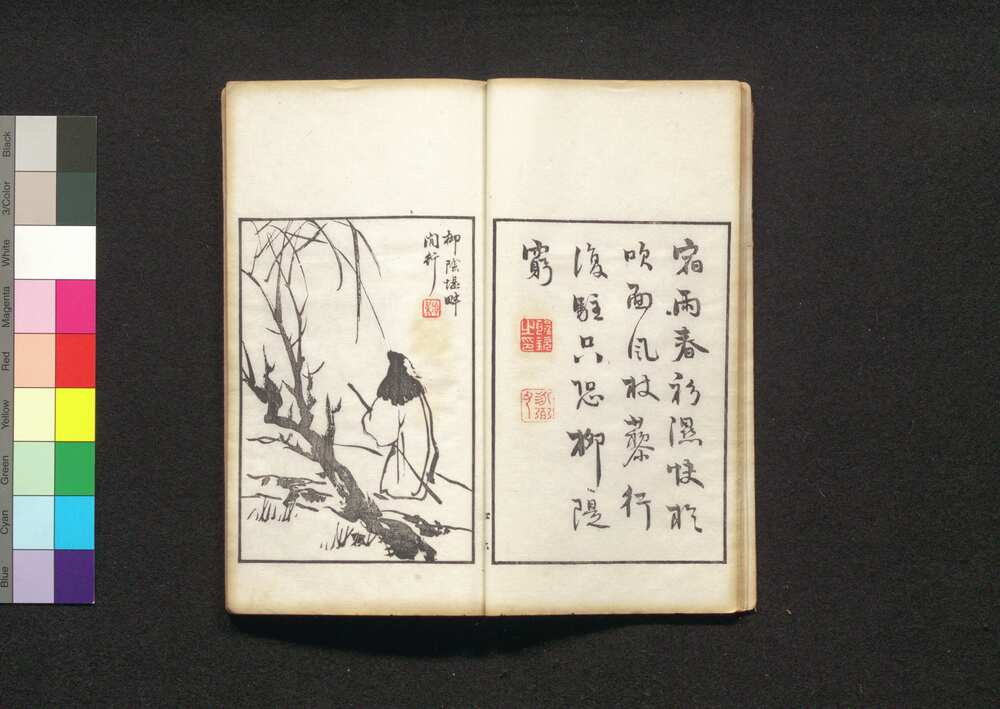 宿雨春衫濕快於
吹面風杖藜行
復駐只恐柳隄
窮
柳陰堤畔
閒行
Black
3/Color
White
Magenta
Red
Yellow
Green
Cyan
Blue